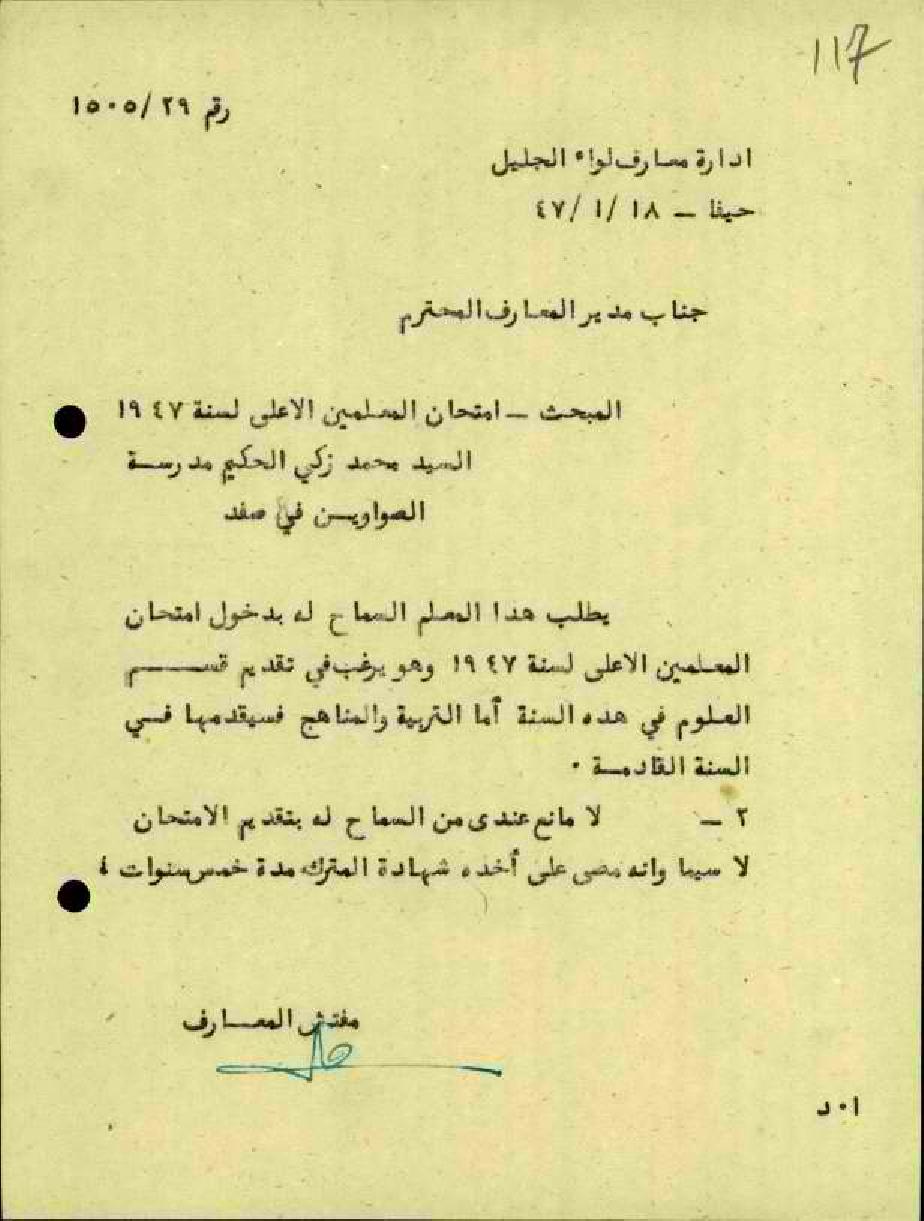 117
رقم ٢٩/ ١٥٠٥
ادارة معارف لواء الجليل
حيفا – ١٨ /١ /٤٧
جناب مدير المعارف المحترم
المبحث – امتحان المعلمين الاعلى لسنة ١٩٤٧
السيد محمد زكي الحكيم مدرسة
الصواويـن في صفد
يطلب هدا المعلم السماح له بدخول امتحان
المعلمين الاعلى لسنة ١٩٤٧ وهو يرغب في تقديم قســـم
العلوم في هده السنة أما التربية والمناهج فسيقدمها فـي
السنة القادمـة ٠
٢ – لا مانع عندى من السماح له بتقديم الامتحان
لا سيما وانه مضى على أخده شهادة المترك مدة خمس سنوات ٤
مفتش المعــارف
ا٠ د